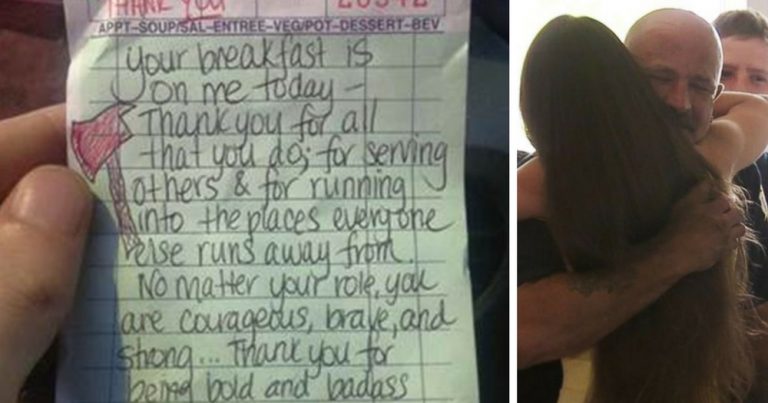 THANK YOU
APPT-SOUP/SAL-ENTREE-VEG/POT-DESSERT-BEV
your breakfast is
on me today -
Thank you for all
that you do; for serving
others & for running
into the places everyone
else runs away from.
No matter your role, you
are courageous, brave, and
strong... Thank you for
being bold and badass